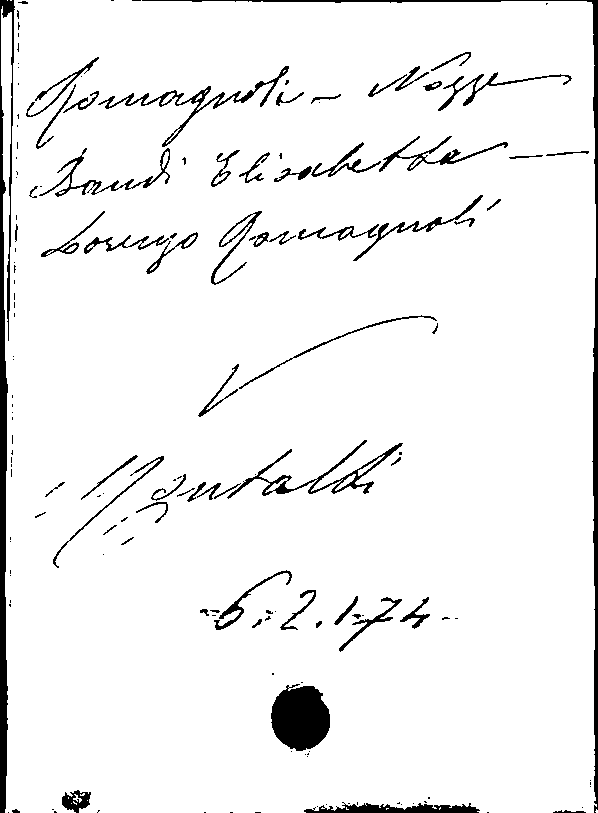 Romagnoli - Nozze
Bandi Elisabetta -
Lorenzo Romagnoli
V
Montaldi
6.2.174